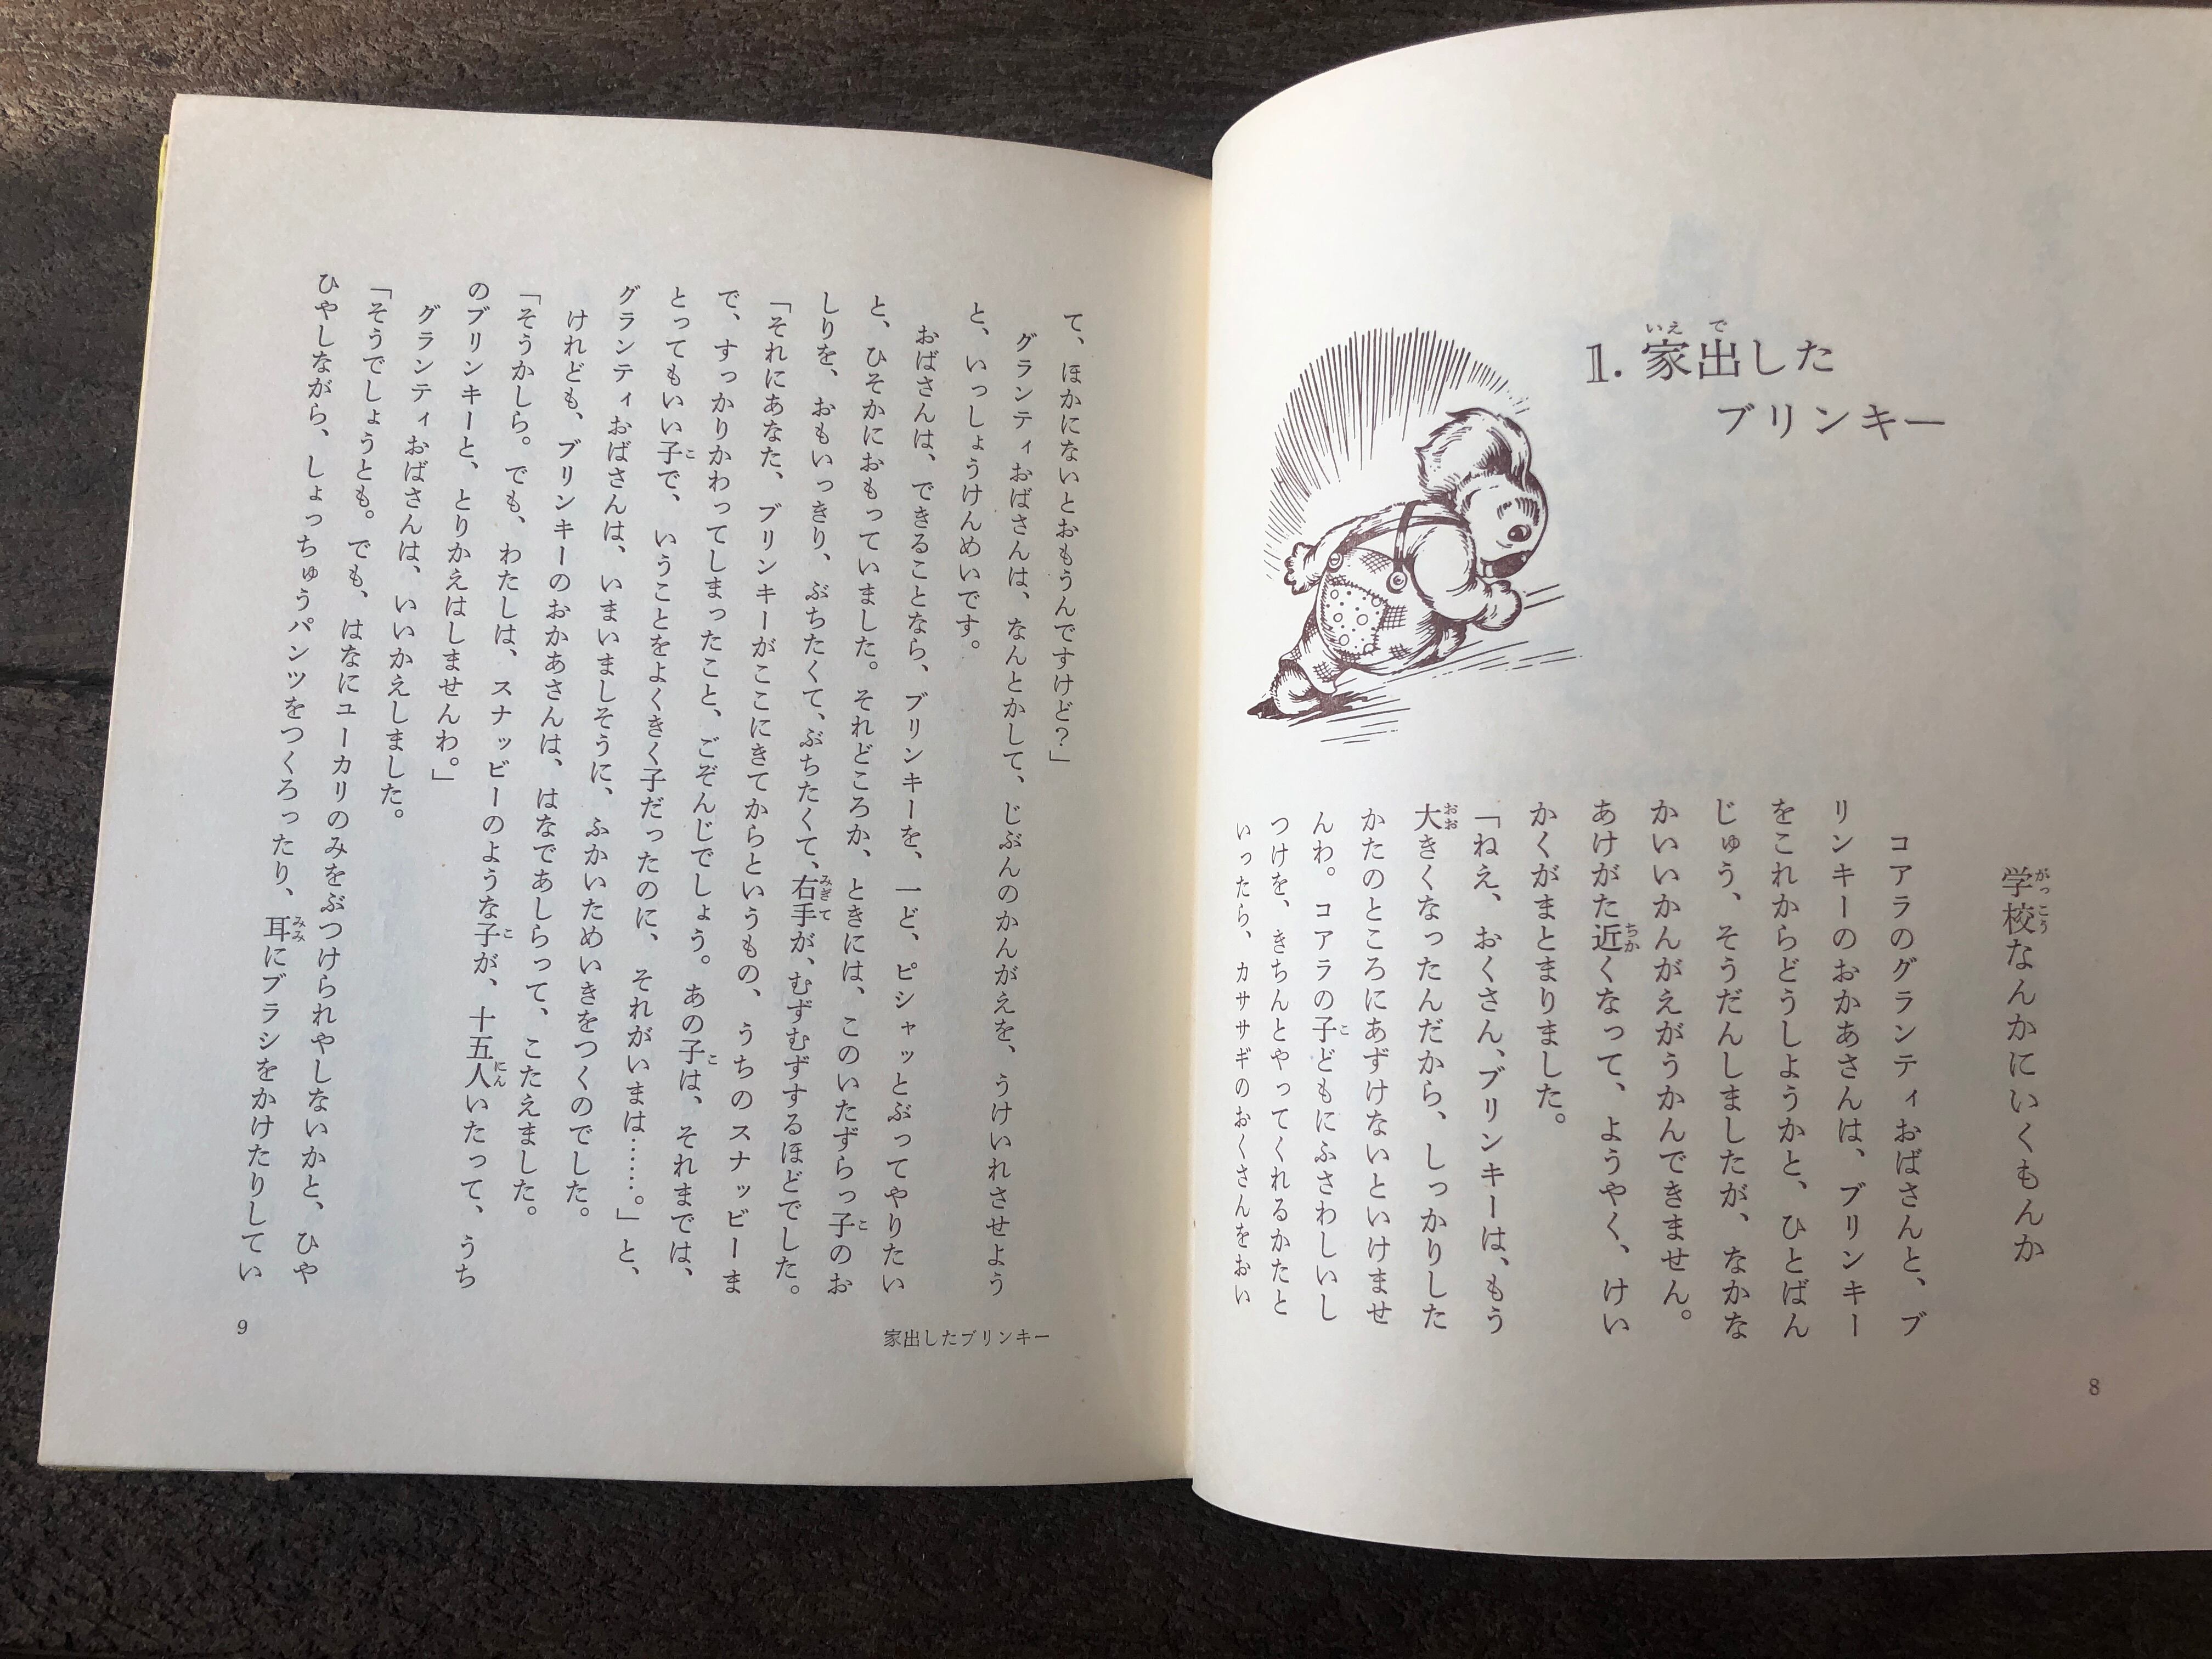 1. 家出した
ブリンキー
学校なんかにいくもんか
コアラのグランティおばさんと、ブ
リンキーのおかあさんは、ブリンキー
をこれからどうしようかと、ひとばん
じゅう、そうだんしましたが、なかな
かいいかんがえがうかんできません。
あけがた近くなって、ようやく、けい
かくがまとまりました。
「ねえ、おくさん、ブリンキーは、もう
大きくなったんだから、しっかりした
かたのところにあずけないといけませ
んわ。コアラの子どもにふさわしいし
つけを、きちんとやってくれるかたと
いったら、カササギのおくさんをおい
8
て、ほかにないとおもうんですけど？」
グランティおばさんは、なんとかして、じぶんのかんがえを、うけいれさせよう
と、いっしょうけんめいです。
おばさんは、できることなら、ブリンキーを、一ど、ピシャッとぶってやりたい
と、ひそかにおもっていました。それどころか、ときには、このいたずらっ子のお
しりを、おもいっきり、ぶちたくて、ぶちたくて、右手が、むずむずするほどでした。
「それにあなた、ブリンキーがここにきてからというもの、うちのスナッビーま
で、すっかりかわってしまったこと、ごぞんじでしょう。あの子は、それまでは、
とってもいい子で、いうことをよくきく子だったのに、それがいまは……。」と、
グランティおばさんは、いまいましそうに、ふかいためいきをつくのでした。
けれども、ブリンキーのおかあさんは、はなであしらって、こたえました。
「そうかしら。でも、わたしは、スナッビーのような子が、十五人いたって、うち
のブリンキーと、とりかえはしませんわ。」
グランティおばさんは、いいかえしました。
「そうでしょうとも。でも、はなにユーカリのみをぶつけられやしないかと、ひや
ひやしながら、しょっちゅうパンツをつくろったり、耳にブラシをかけたりしてい
家出したブリンキー
9